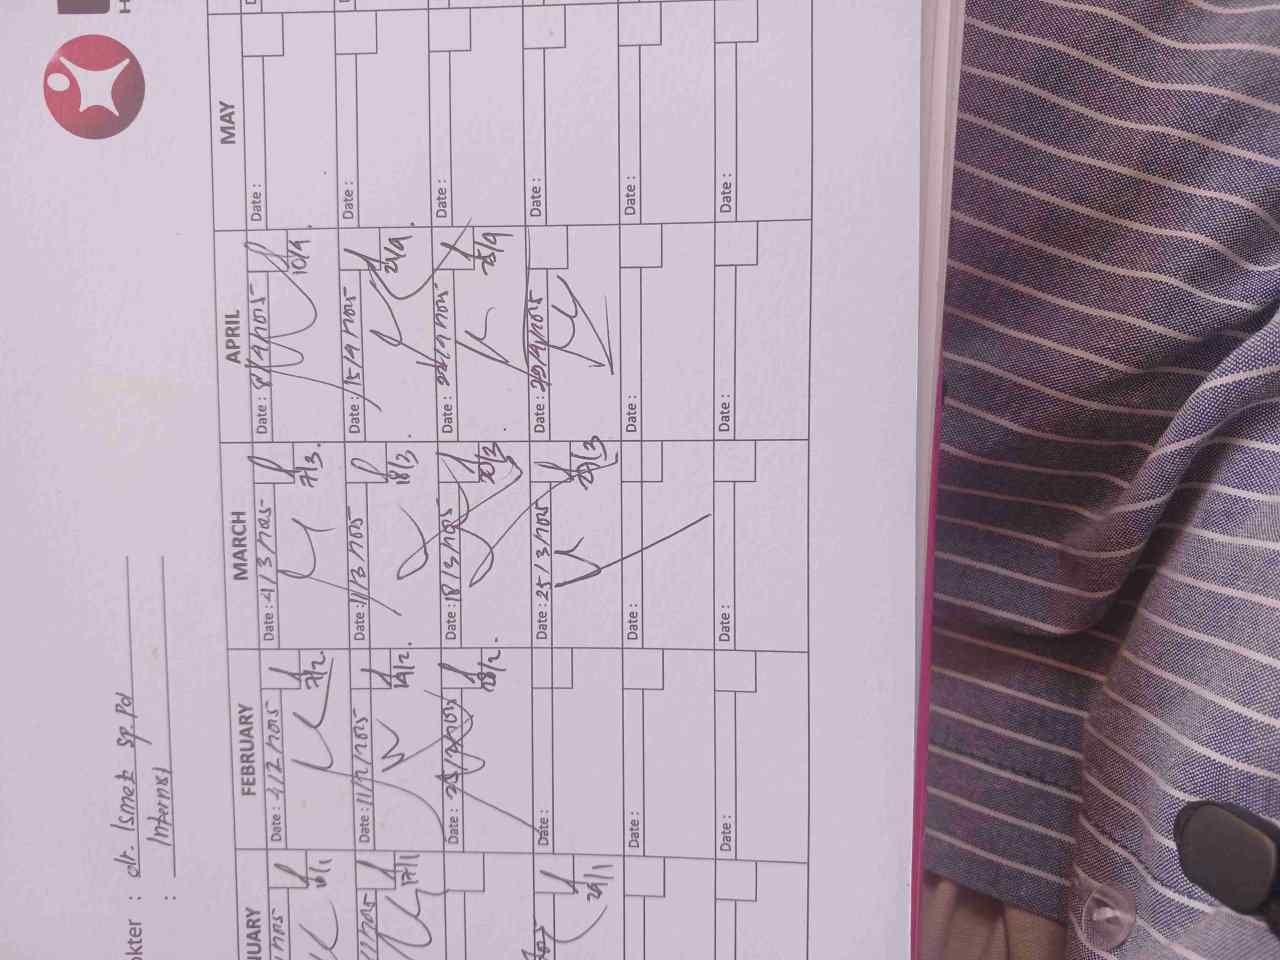 H
okter : dr. Ismet Sp.Pd
: Internist
NUARY
FEBRUARY
MARCH
APRIL
MAY
Date : 4/2/2025
7/2
Date : 4/3/2025
7/3
Date : 8/4/2025
10/4
Date :
17/1
Date : 11/2/2025
14/2
Date : 11/3/2025
18/3
Date : 15/4/2025
21/4
Date :
Date :
18/2
Date : 18/3/2025
20/3
Date : 22/4/2025
25/4
Date :
29/1
Date :
Date : 25/3/2025
27/3
Date : 29/4/2025
Date :
Date :
Date :
Date :
Date :
Date :
Date :
Date :
Date :